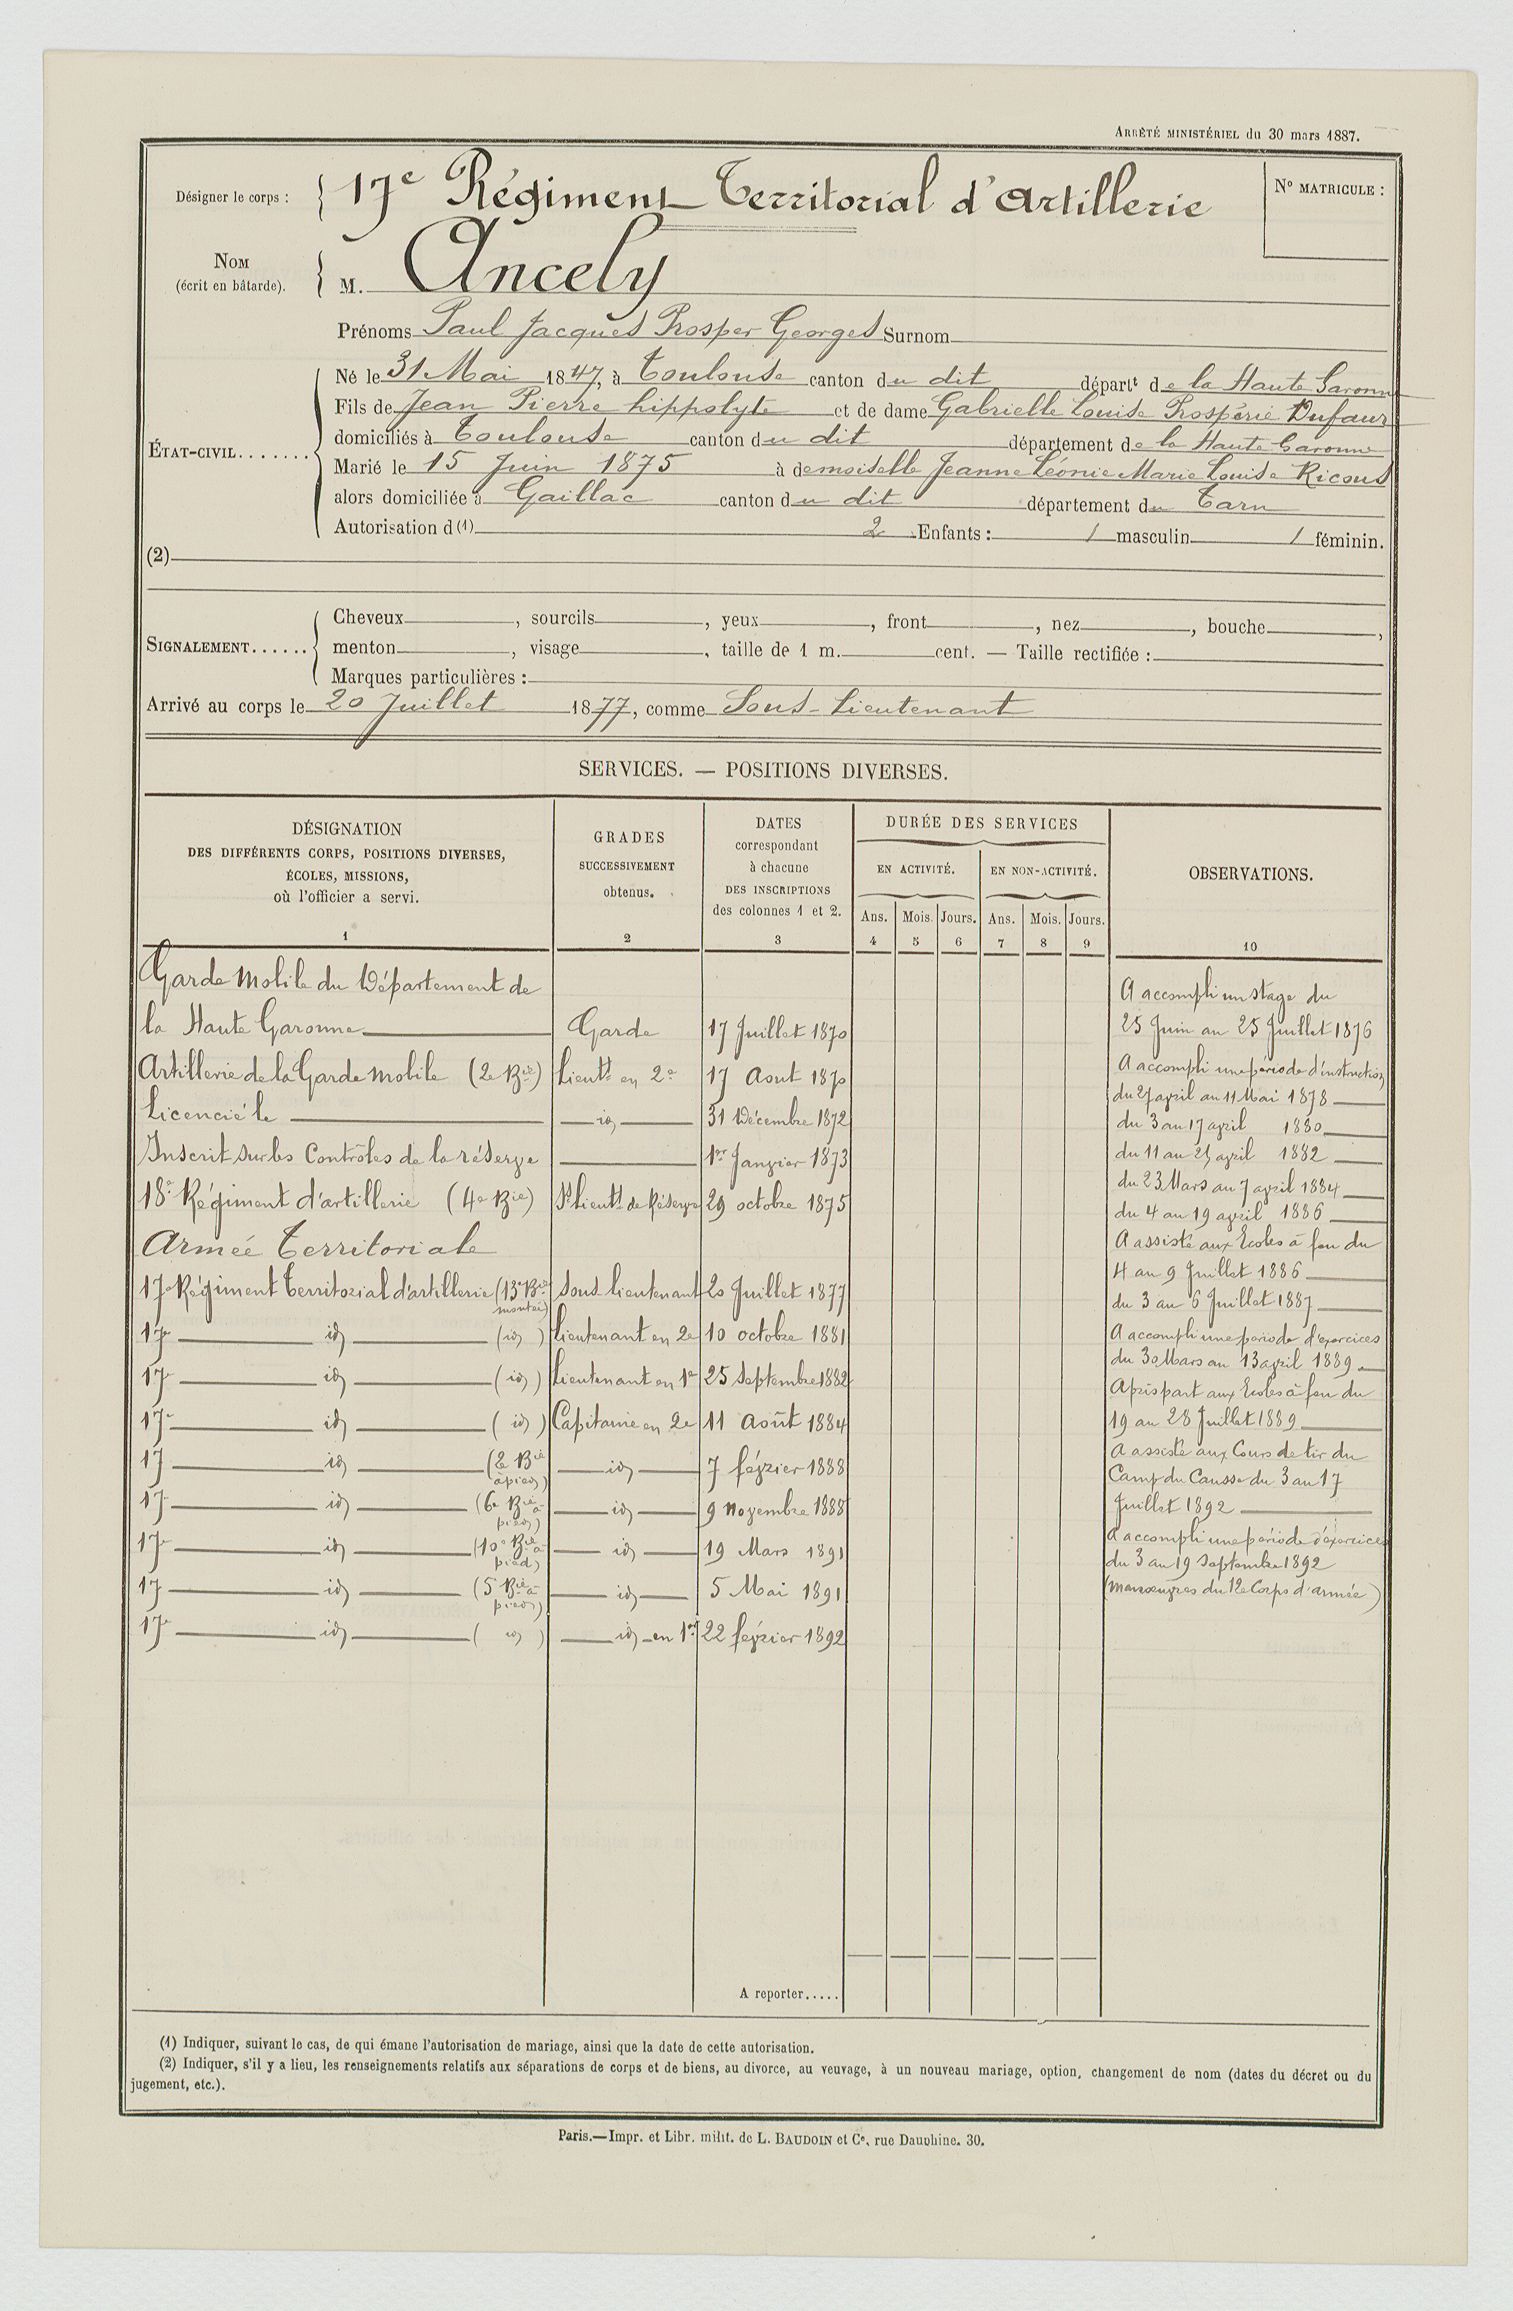 ARRÊTÉ MINISTÉRIEL du 30 mars 1887.
Désigner le corps : 17e Régiment Territorial d'Artillerie
N° MATRICULE :
NOM
(écrit en bâtarde).
M. Ancely
Prénoms Paul Jacques Prosper Georges Surnom
ÉTAT-CIVIL.......
Né le 31 Mai 1847, à Toulouse canton du dit départt de la Haute Garonne
Fils de Jean Pierre hippolyte et de dame Gabrielle Louise Prospérie Dufaur
domiciliés à Toulouse canton du dit département de la Haute Garonne
Marié le 15 Juin 1875 à demoiselle Jeanne Léonie Marie Louise Ricous
alors domiciliée à Gaillac canton du dit département du Tarn
Autorisation d(1) 2 Enfants : 1 masculin 1 féminin.
(2)
SIGNALEMENT......
Cheveux , sourcils , yeux , front , nez , bouche ,
menton , visage , taille de 1 m. cent. — Taille rectifiée :
Marques particulières :
Arrivé au corps le 20 Juillet 1877, comme Sous-Lieutenant
SERVICES. — POSITIONS DIVERSES.
DÉSIGNATION
DES DIFFÉRENTS CORPS, POSITIONS DIVERSES,
ÉCOLES, MISSIONS,
où l'officier a servi.
1
GRADES
SUCCESSIVEMENT
obtenus.
2
DATES
correspondant
à chacune
DES INSCRIPTIONS
des colonnes 1 et 2.
3
DURÉE DES SERVICES
EN ACTIVITÉ. EN NON-ACTIVITÉ.
Ans. Mois. Jours. Ans. Mois. Jours.
4 5 6 7 8 9
OBSERVATIONS.
10
Garde Mobile du Département de
la Haute Garonne Garde 17 Juillet 1870
Artillerie de la Garde Mobile (2e Bie) Lieutt en 2e 17 Aout 1870
Licencié le id 31 Décembre 1872
Inscrit sur les Contrôles de la réserve 1er Janvier 1873
18e Régiment d'artillerie (4e Bie) S. Lieutt de Réserve 29 octobre 1875
Armée Territoriale
17e Régiment Territorial d'artillerie (13e Bie montée) Sous Lieutenant 20 Juillet 1877
17e id (id) Lieutenant en 2e 10 octobre 1881
17e id (id) Lieutenant en 1er 25 Septembre 1882
17e id (id) Capitaine en 2e 11 Août 1884
17 id (2e Bie à pied) id 7 février 1888
17 id (6e Bie à pied) id 9 Novembre 1888
17e id (10e Bie à pied) id 19 Mars 1891
17 id (5 Bie à pied) id 5 Mai 1891
17e id (id) id en 1er 22 février 1892
A accompli un stage du
25 Juin au 25 Juillet 1876
A accompli une période d'instruction
du 27 avril au 11 Mai 1878
du 3 au 17 avril 1880
du 11 au 25 avril 1882
du 23 Mars au 7 avril 1884
du 4 au 19 avril 1886
A assisté aux Ecoles à feu du
4 au 9 Juillet 1886
du 3 au 6 Juillet 1887
A accompli une période d'exercices
du 30 Mars au 13 avril 1889
A pris part aux Ecoles à feu du
19 au 28 Juillet 1889
A assisté aux Cours de tir du
Camp du Causse du 3 au 17
Juillet 1892
A accompli une période d'exercices
du 3 au 19 Septembre 1892
(manœuvres du 12e Corps d'armée)
A reporter.....
(1) Indiquer, suivant le cas, de qui émane l'autorisation de mariage, ainsi que la date de cette autorisation.
(2) Indiquer, s'il y a lieu, les renseignements relatifs aux séparations de corps et de biens, au divorce, au veuvage, à un nouveau mariage, option, changement de nom (dates du décret ou du
jugement, etc.).
Paris.—Impr. et Libr. milit. de L. BAUDOIN et Ce, rue Dauphine. 30.